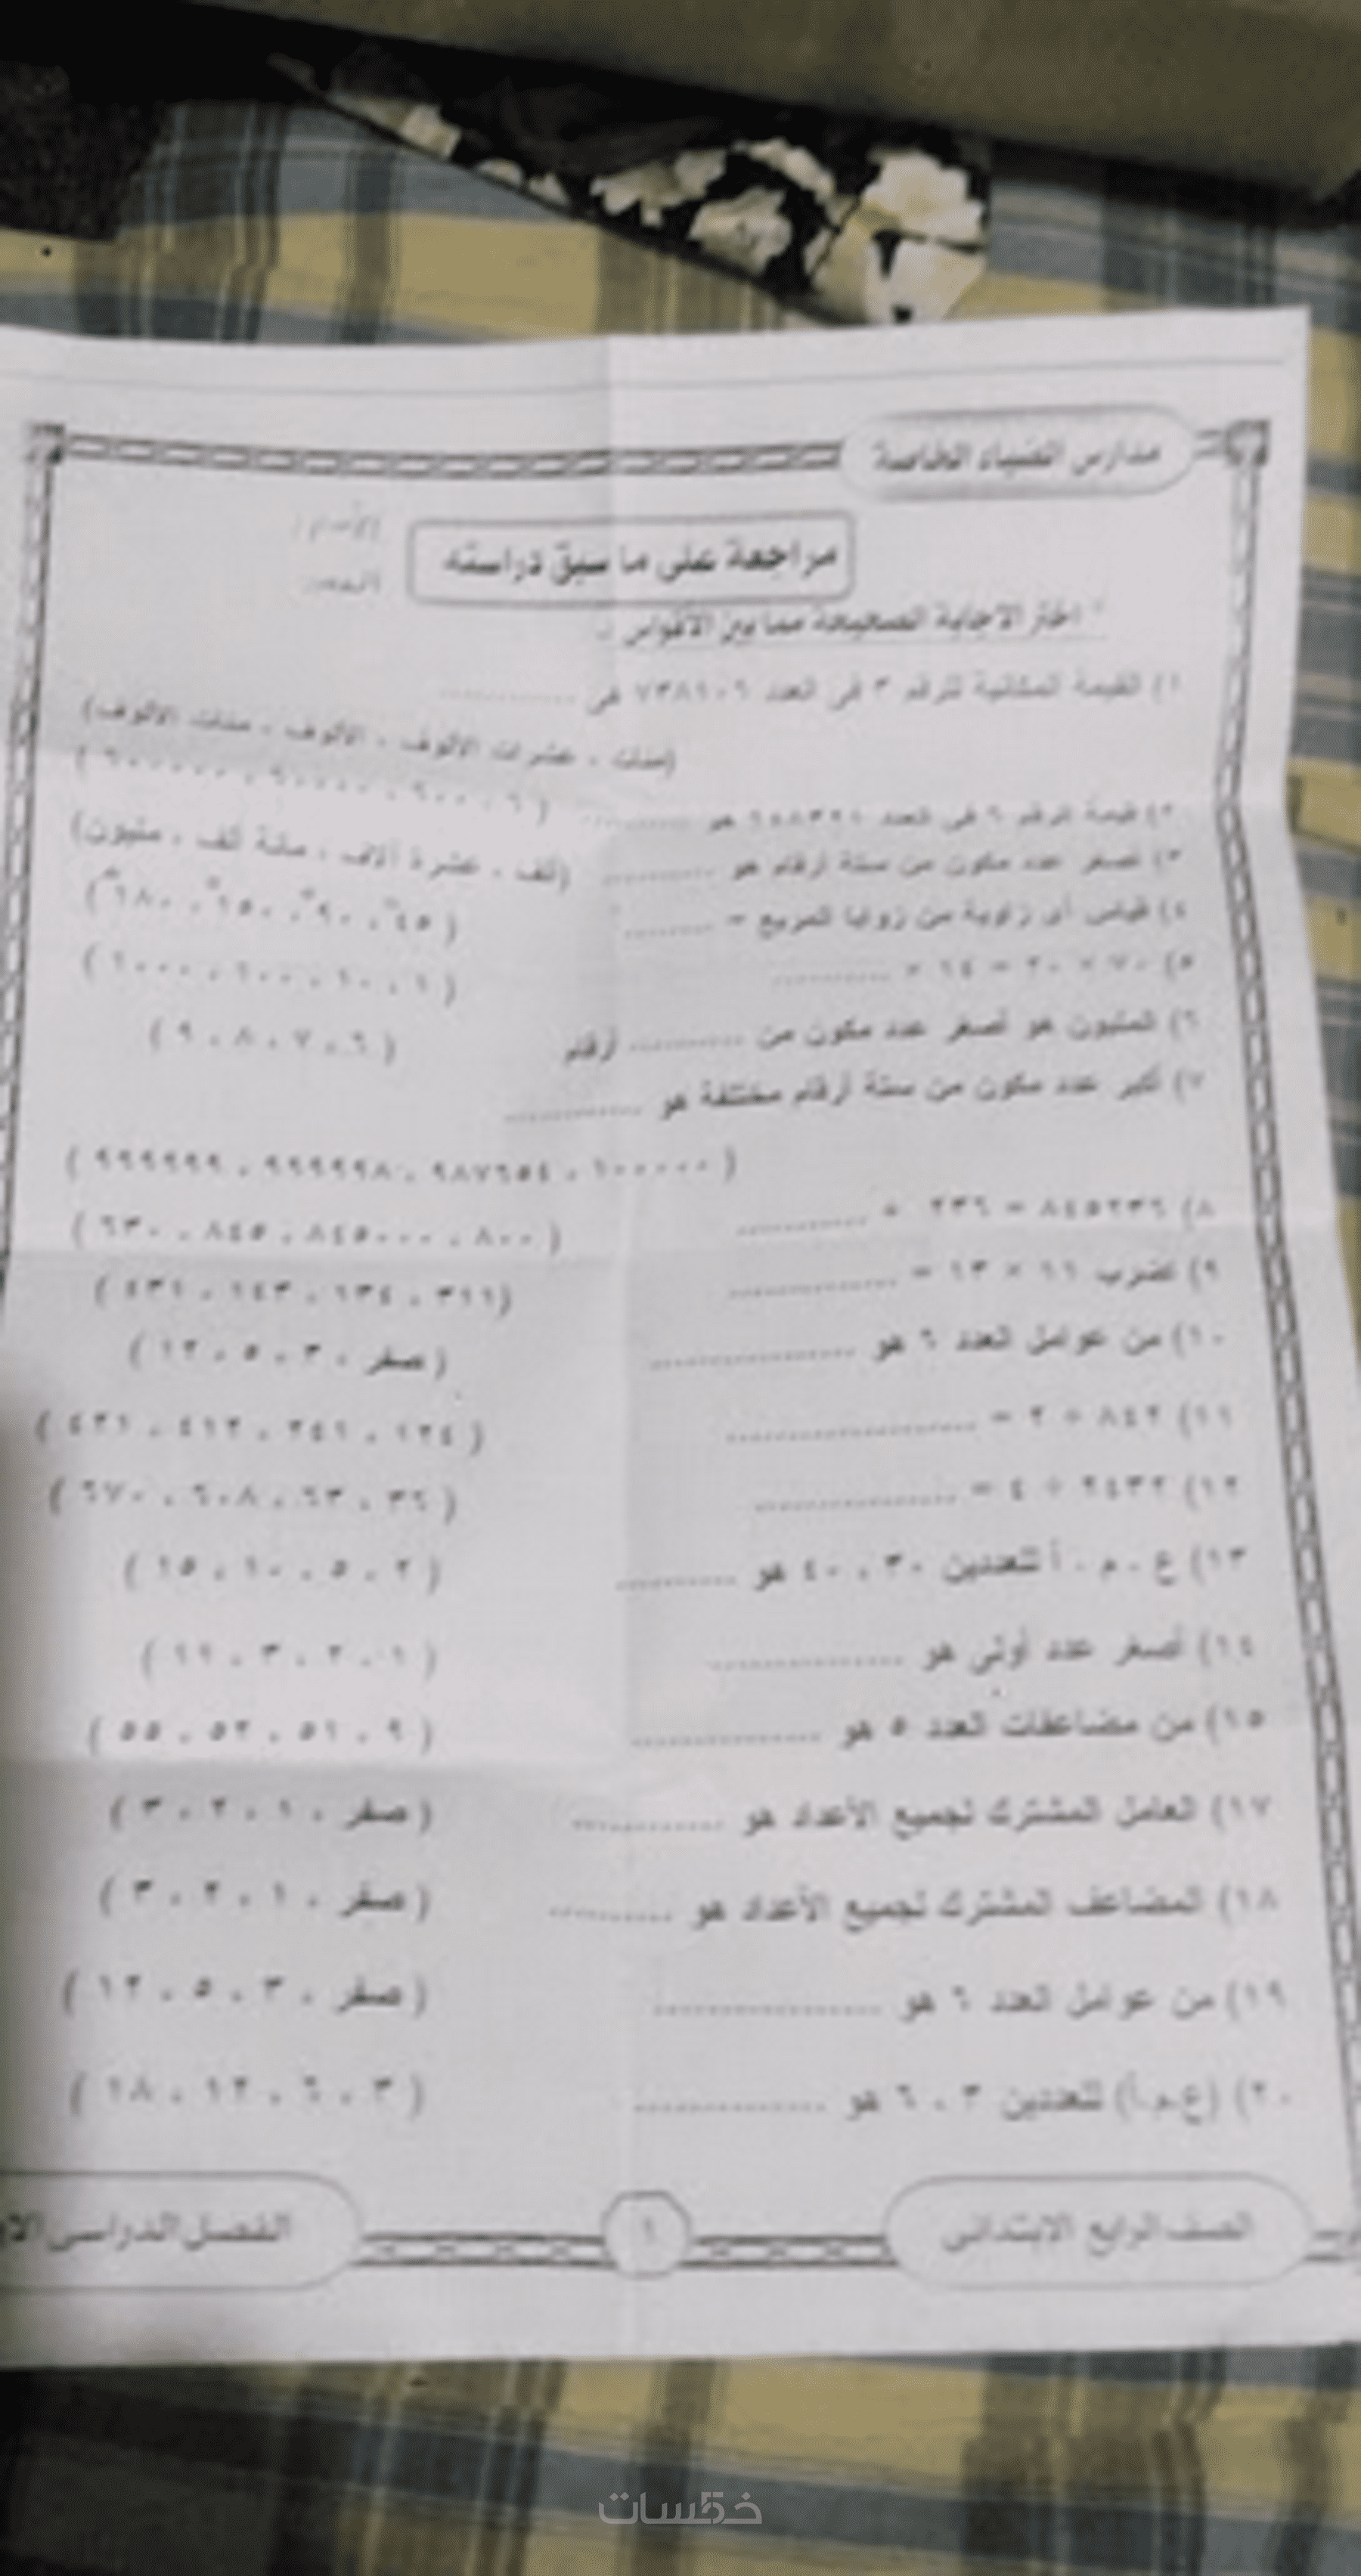 مدارس الضياء الخاصة
الأسم :
مراجعة على ما سبق دراسته
اختر الاجابة الصحيحة مما بين الأقواس :-
١) القيمة المكانية للرقم ٣ فى العدد ٧٣٨٦٠٦ هى ............
(مئات ، عشرات الألوف ، الألوف ، مئات الألوف)
٢) قيمة الرقم ٦ فى العدد هو ............ ( ٦ ، ٦٠٠ ، ٦٠٠٠٠ ، ٦٠٠٠٠٠ )
٣) أصغر عدد مكون من ستة أرقام هو ............ (ألف ، عشرة آلاف ، مائة ألف ، مليون)
٤) قياس أى زاوية من زوايا المربع = ............ ( ٤٥° ، ٩٠° ، ١٥٠° ، ١٨٠° )
٥) ٧٠ × ٢٠ = ١٤ × ............ ( ١ ، ١٠ ، ١٠٠ ، ١٠٠٠ )
٦) المليون هو أصغر عدد مكون من ............ أرقام ( ٦ ، ٧ ، ٨ ، ٩ )
٧) أكبر عدد مكون من ستة أرقام مختلفة هو ............
( ١٠٠٠٠٠ ، ٩٨٧٦٥٤ ، ٩٩٩٩٩٨ ، ٩٩٩٩٩٩ )
٨) ٨٤٥٢٣٦ = ٢٣٦ + ............ ( ٨٠٠ ، ٨٤٥٠٠٠ ، ٨٤٥ ، ٦٣٠ )
٩) حاصل ضرب ١١ × ١٣ = ............ ( ٣١١ ، ١٣٤ ، ١٤٣ ، ٤٣١ )
١٠) من عوامل العدد ٦ هو ............ ( صفر ، ٣ ، ٥ ، ١٢ )
١١) ٨٤٢ ÷ ٢ = ............ ( ١٢٤ ، ٢٤١ ، ٤١٢ ، ٤٢١ )
١٢) ٢٤٣٢ ÷ ٤ = ............ ( ٣٦ ، ٦٣ ، ٦٠٨ ، ٦٧٠ )
١٣) ع . م . أ للعددين ٣٠ ، ٤٠ هو ............ ( ٢ ، ٥ ، ١٠ ، ١٥ )
١٤) أصغر عدد أولى هو ............ ( ١ ، ٢ ، ٣ ، ١١ )
١٥) من مضاعفات العدد ٥ هو ............ ( ٩ ، ٥١ ، ٥٢ ، ٥٥ )
١٧) العامل المشترك لجميع الأعداد هو ............ ( صفر ، ١ ، ٢ ، ٣ )
١٨) المضاعف المشترك لجميع الأعداد هو ............ ( صفر ، ١ ، ٢ ، ٣ )
١٩) من عوامل العدد ٦ هو ............ ( صفر ، ٣ ، ٥ ، ١٢ )
٢٠) (ع.م.أ) للعددين ٣ ، ٦ هو ............ ( ٣ ، ٦ ، ١٢ ، ١٨ )
الصف الرابع الابتدائى ١ الفصل الدراسى الأو
خمسات